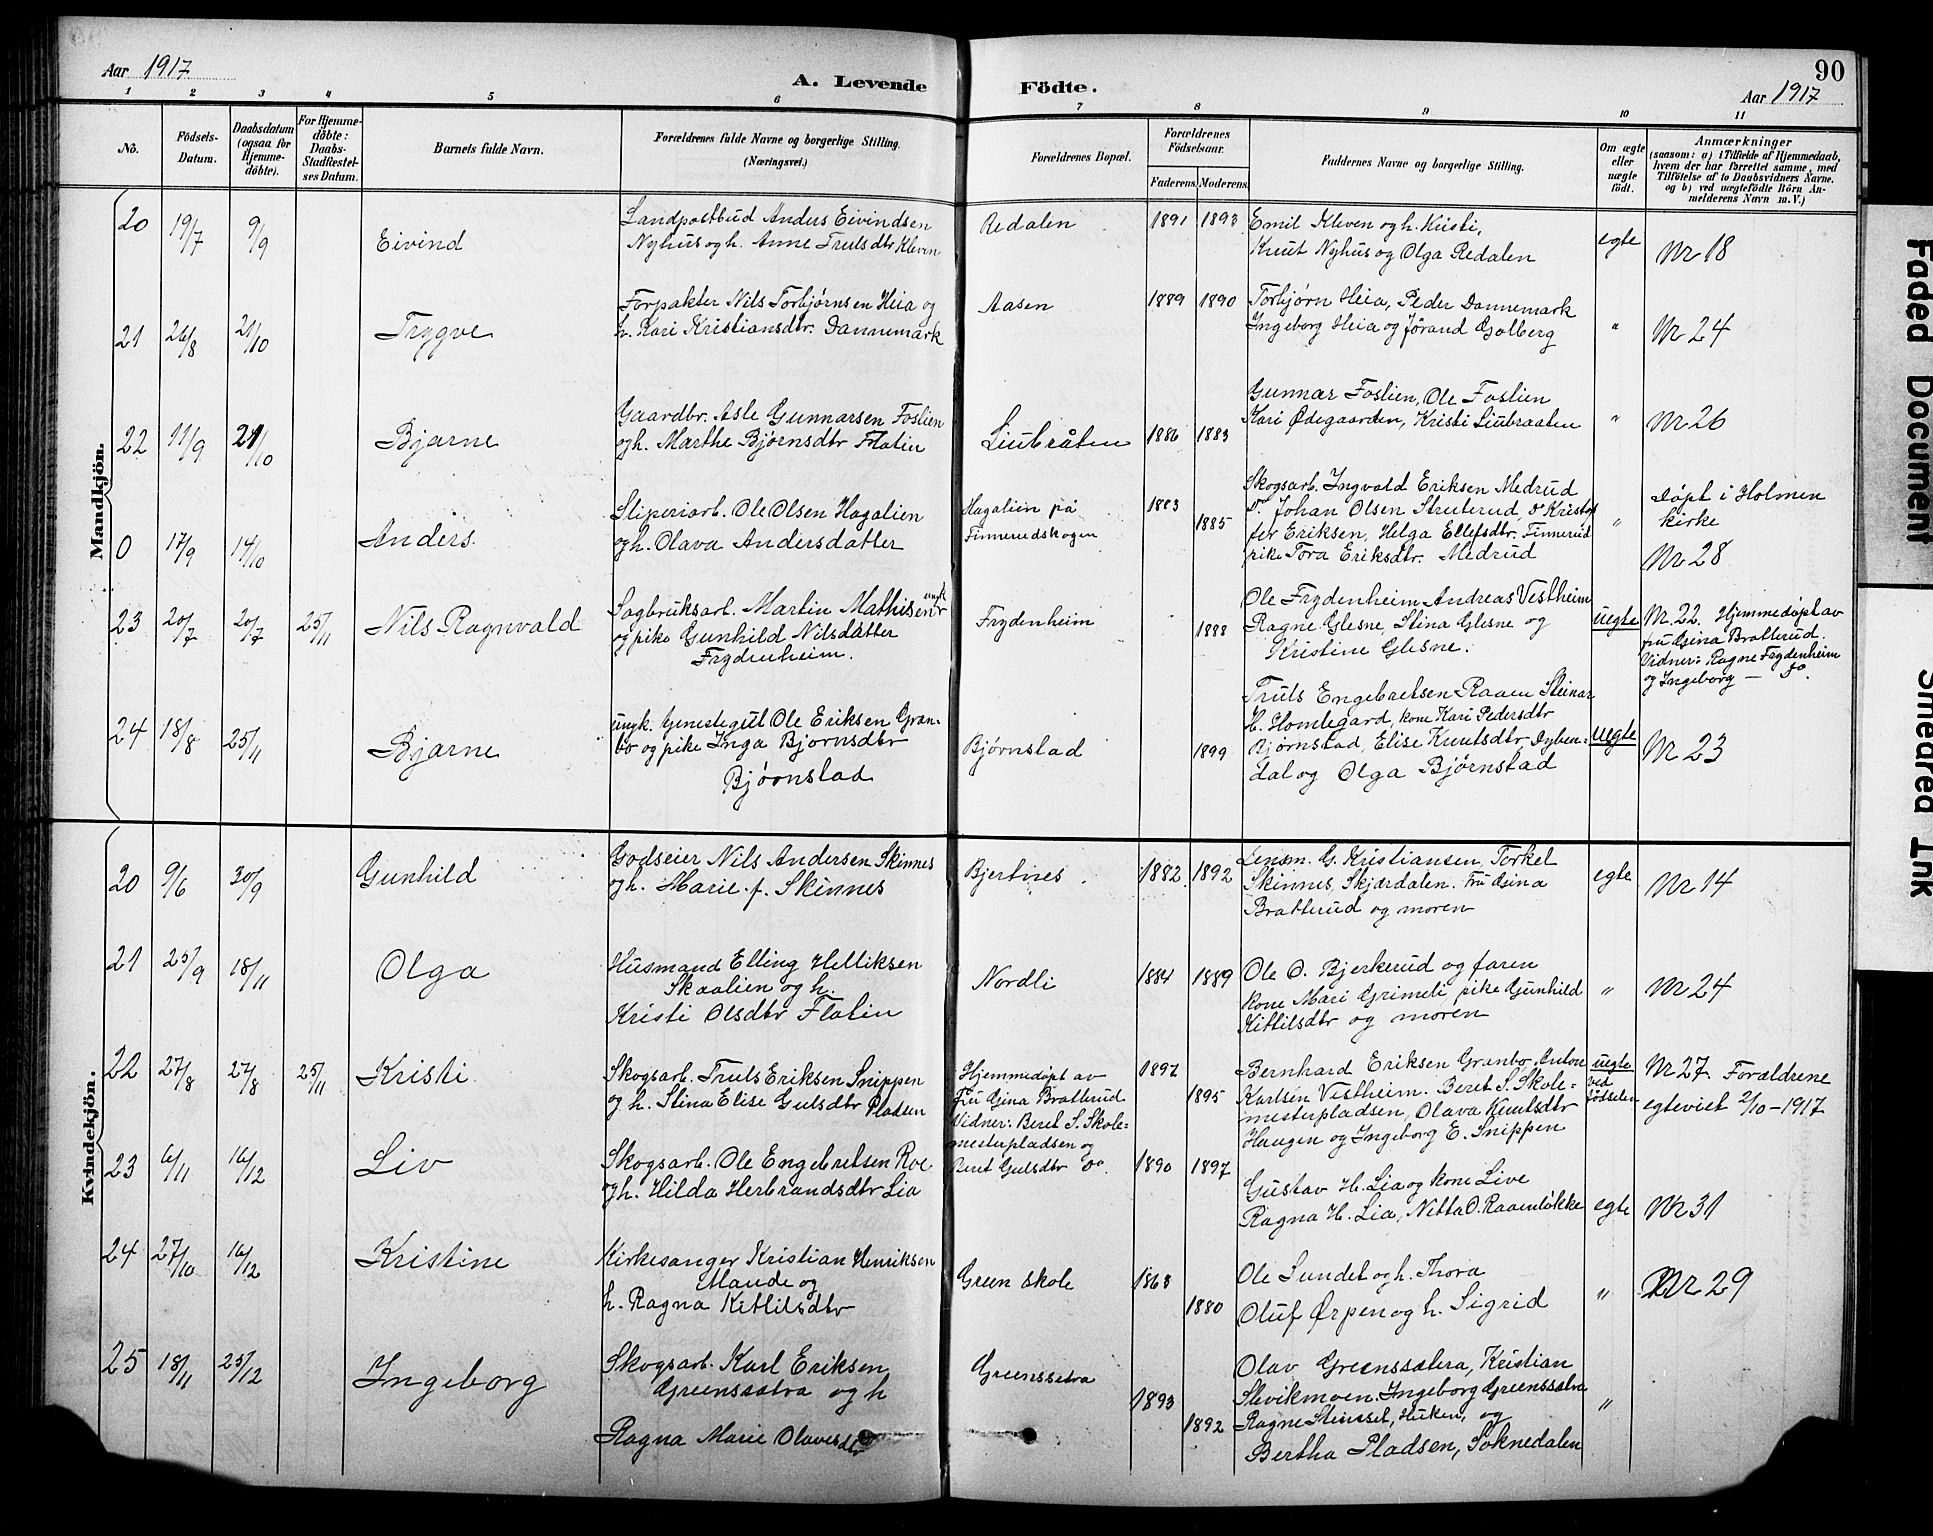 Aar 1917
A. Levende Födte.
90
Aar 1917
1 2 3 4 5 6 7 8 9 10 11
No.
Födsels-Datum.
Daabsdatum (ogsaa for Hjemme-döbte).
For Hjemme-döbte: Daabs-Stadfæstel-ses Datum.
Barnets fulde Navn.
Forældrenes fulde Navne og borgerlige Stilling.
(Næringsvei.)
Forældrenes Bopæl.
Forældrenes Födselsaar.
Faderens. Moderens.
Faddernes Navne og borgerlige Stilling.
Om ægte eller uægte födt.
Anmærkninger
(saasom: a) i Tilfælde af Hjemmedaab,
hvem der har forrettet samme, med
Tilföielse af to Daabsvidners Navne.
og b) ved uægtefödte Börn An-
melderens Navn m. V.)
Mandkjön.
20 19/7 9/9 Eivind
Landpostbud Anders Eivindsen
Nyhus og h. Anne Trulsdtr Kleven
Redalen 1891 1893
Emil Kleven og h. Kristi,
Knut Nyhus og Olga Redalen
egte Nr 18
21 26/8 21/10 Trygve
Forpakter Nils Torbjørnsen Heia og
h. Kari Kristiansdtr. Dannemark
Aasen 1889 1890
Torbjørn Heia, Peder Dannemark
Ingeborg Heia og Jørand Golberg
" Nr 24
22 11/9 21/10 Bjarne
Gaardbr. Asle Gunnarsen Foslien
og h. Marthe Bjørnsdtr Flatin
Liubråten 1886 1883
Gunnar Foslien, Ole Foslien
Kari Ødegaarden, Kristi Liubraaten
" Nr 26
0 17/9 14/10 Anders
Sliperiarb. Ole Olsen Hagalien
og h. Olava Andersdatter
Hagalien på
Finnerudskogen
1883 1885
Skogsarb. Ingvald Eriksen Medrud
Do Johan Olsen Struterud, do Kristof
fer Eriksen, Helga Ellefsdtr. Finnerud
pike Tora Eriksdtr. Medrud
" Døpt i Holmen
kirke
Nr 28
23 20/7 20/7 25/11 Nils Ragnvald
Sagbruksarb. Martin Mathisen ungk
og pike Gunhild Nilsdatter
Frydenheim.
Frydenheim 1888
Ole Frydenheim Andreas Vestheim
Ragne Glesne, Stina Glesne og
Kristine Glesne.
uegte
Nr. 22. Hjemmedøpt av
fru Gina Bratterud.
Vidner: Ragne Frydenheim
og Ingeborg — do.
24 18/8 25/11 Bjarne
ungk. Ole Eriksen Gran-
bo og pike Inga Bjørnsdtr
Bjørnstad
Bjørnstad 1899
Truls Engebretsen Raaen Steinar
H. Homlegard, kone Kari Pedersdtr
Bjørnstad, Elise Knutsdtr Dyben-
dal og Olga Bjørnstad
uegte Nr 23
Kvindekjön.
20 9/6 30/9 Gunhild
Godseier Nils Andersen Skinnes
og h. Marie f. Skinnes
Bjertnes. 1882 1892
Lensm. G. Kristiansen, Torkel
Skinnes, Skjærdalen. Fru Gina
Bratterud og moren
egte Nr 14
21 25/9 18/11 Olga
Husmand Elling Helliksen
Skaalien og h.
Kristi Olsdtr Flatin
Nordli 1884 1889
Ole O. Bjerkerud og faren
kone Mari Grimeli, pike Gunhild
Kittilsdtr og moren
" Nr 24
22 27/8 27/8 25/11 Kristi
Skogsarb. Truls Eriksen Snippen
og h. Stina Elise Gulsdtr Pladsen
Hjemmedøpt av
Fru Gina Bratterud
Vidner: Beret S. Skole-
mesterpladsen og
Beret Gulsdtr do.
1897 1895
Bernhard Eriksen Granbo. Anton
Karlsen Vestheim. Beret S. Skole-
mesterpladsen, Olava Knutsdtr
Haugen og Ingeborg E. Snippen
uegte
ved
fødselen
Nr 27. Forældrene
egteviet 2/10 - 1917
23 6/11 16/12 Liv
Skogsarb. Ole Engebretsen Roe
og h. Hilda Herbrandsdtr Lia
1890 1897
Gustav H. Lia og kone Live
Ragna H. Lia, Nitta O. Raaenløkke
egte Nr 31
24 27/10 16/12 Kristine
Kirkesanger Kristian Henriksen
Maude og
h. Ragna Kittilsdtr
Green skole 1868 1880
Ole Sundet og h. Thora
Oluf Ørpen og h. Sigrid
" Nr 29
25 18/11 25/12 Ingeborg
Skogsarb. Karl Eriksen
Greenssætra og h
Ragna Marie Olavesdtr
Greenssetra 1893 1892
Olav Greenssætra, Kristian
Slevikmoen. Ingeborg Greenssætra
Ragne Stensset, Huken, og
Bertha Pladsen, Soknedalen
"
Faded Document
Smeared Ink